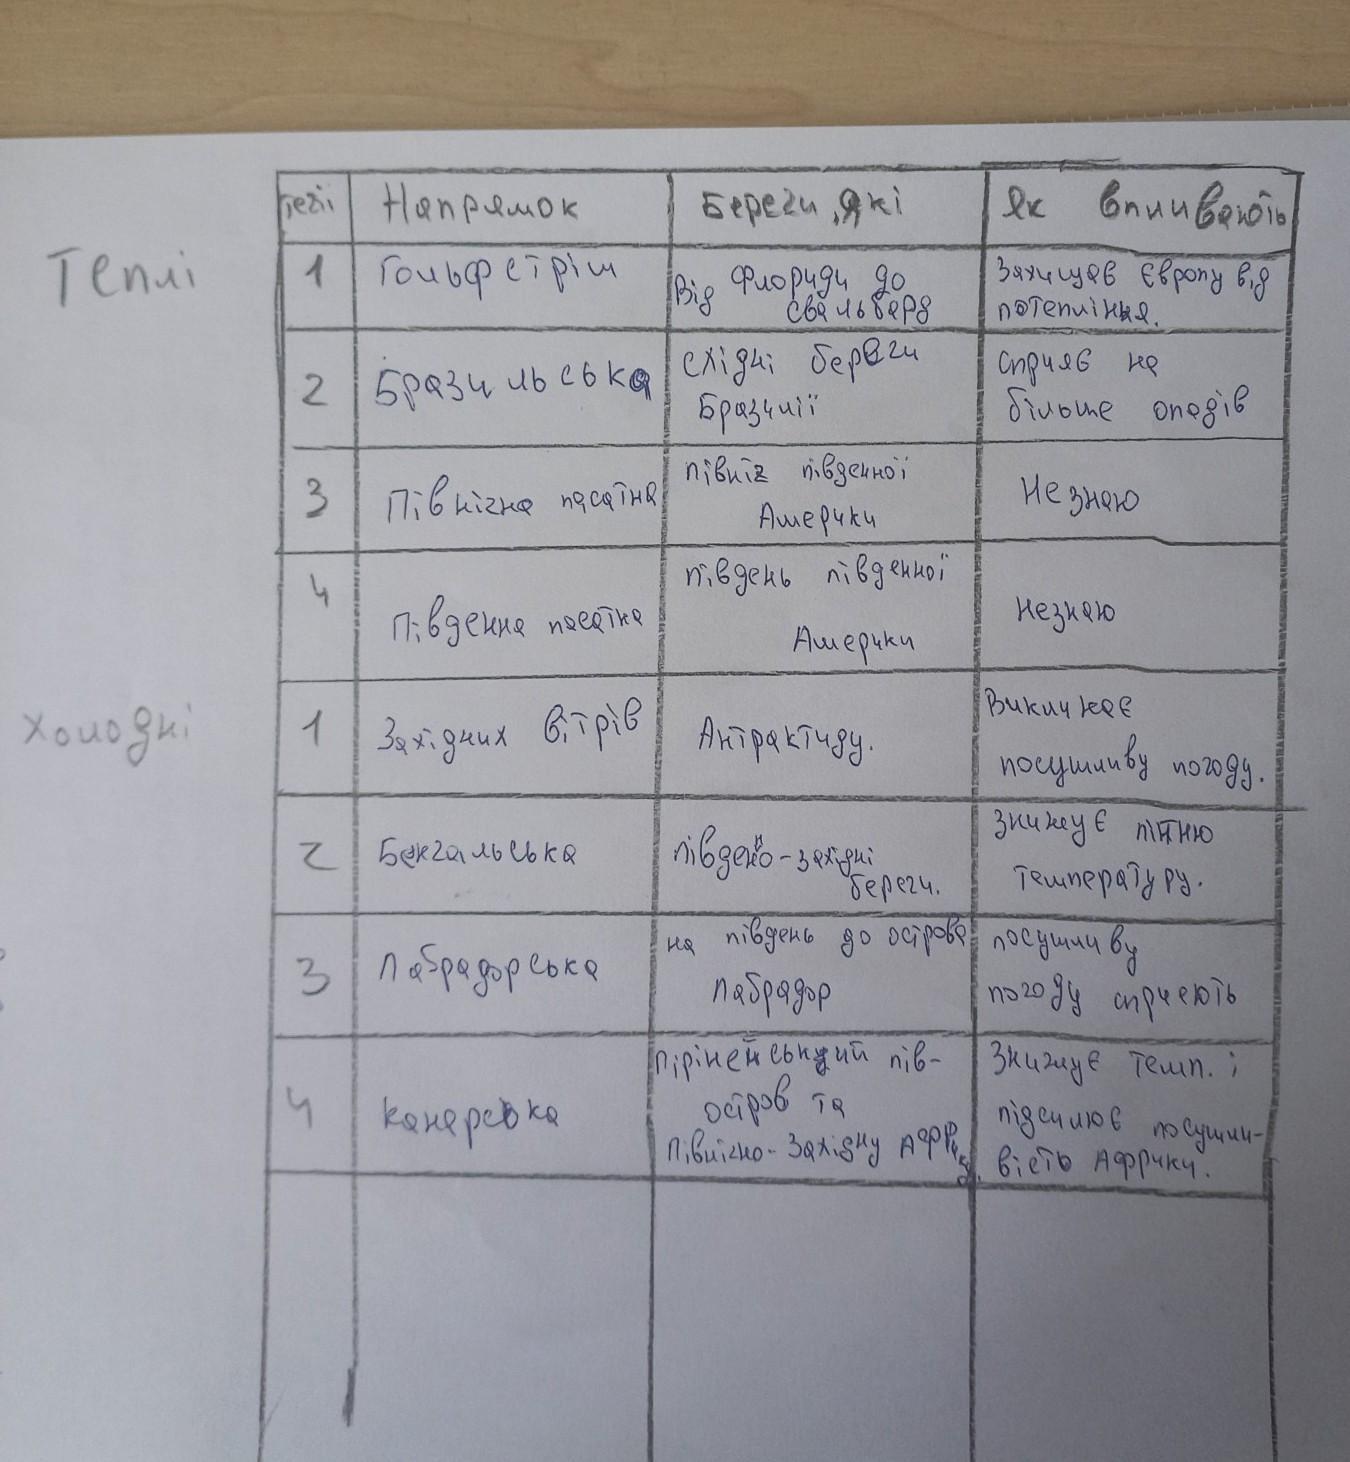 течії Напрямок Береги, які Як впливають
Теплі
1 Гольфстрім Від Флориди до Свальбард Захищає Європу від потепління.
2 Бразильська східні береги Бразилії сприяє на більше опадів
3 Північна пасатна північ південної Америки Незнаю
4 Південна пасатна південь південної Америки незнаю
Холодні
1 Західних вітрів Антрактиду. Викликає посушливу погоду.
2 Бенгальська південо-західні береги. знижує літню температуру.
3 Лабрадорська на південь до острова Лабрадор посушливу погоду сприяють
4 канарська Пірінейський пів-острів та Північно-Західну Африку. Знижує темп. і підсилює посушли-вість Африки.